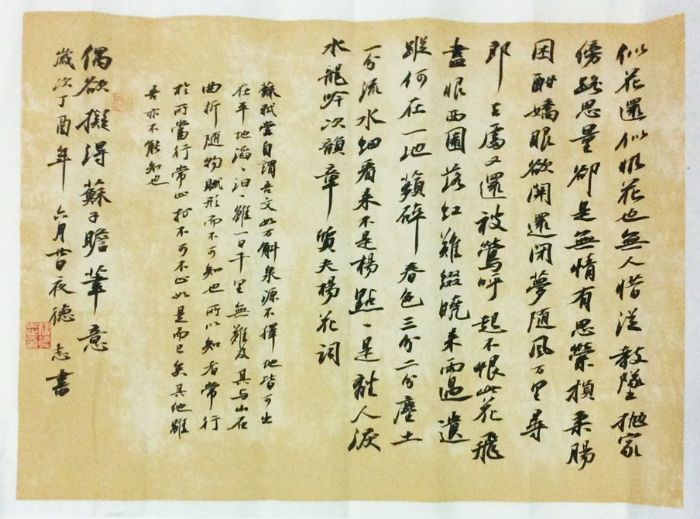 似花還似非花也無人惜從教墜拋家
傍路思量卻是無情有思縈損柔腸
困酣嬌眼欲開還閉夢隨風万里尋
郎去處又還被鶯呼起不恨此花飛
盡恨西園落紅難綴曉來雨過遺
蹤何在一池蘋碎春色三分二分塵土
一分流水細看來不是楊點、是離人淚
水龍吟次韻章質夫楊花詞
蘇軾嘗自謂吾文如万斛泉源不擇地皆可出
在平地滔、汩、雖一日千里無難及其与山石
曲折隨物賦形而不可知也所以知者常行
於所當行常止於不可不止如是而已矣其他雖
吾亦不能知也
偶欲擬得蘇子瞻筆意
歲次丁酉年六月廿日夜德志書